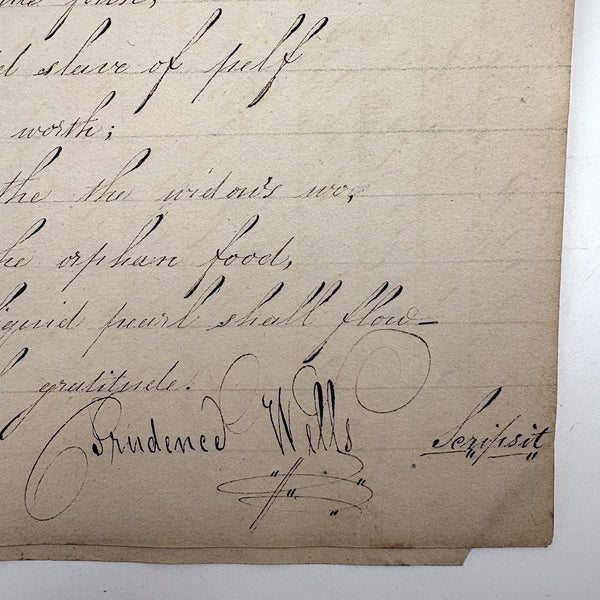 d slave of pelf
worth;
the the widow's wo,
he orphan food,
liquid pearl shall flow
gratitude.
Prudence Wells Scripsit